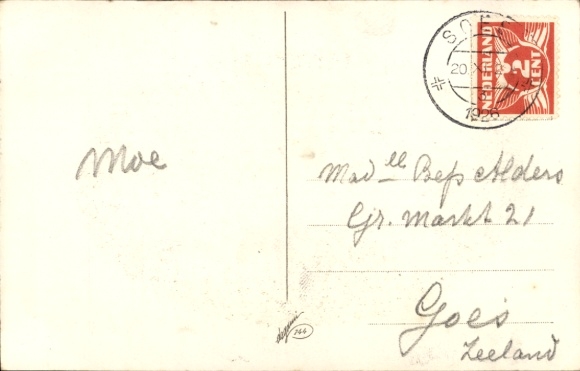 Moe
Mad^elle Bep Alders
Gr. Markt 21
Goes
Zeeland
NEDERLAND
2
CENT
20
1926
244